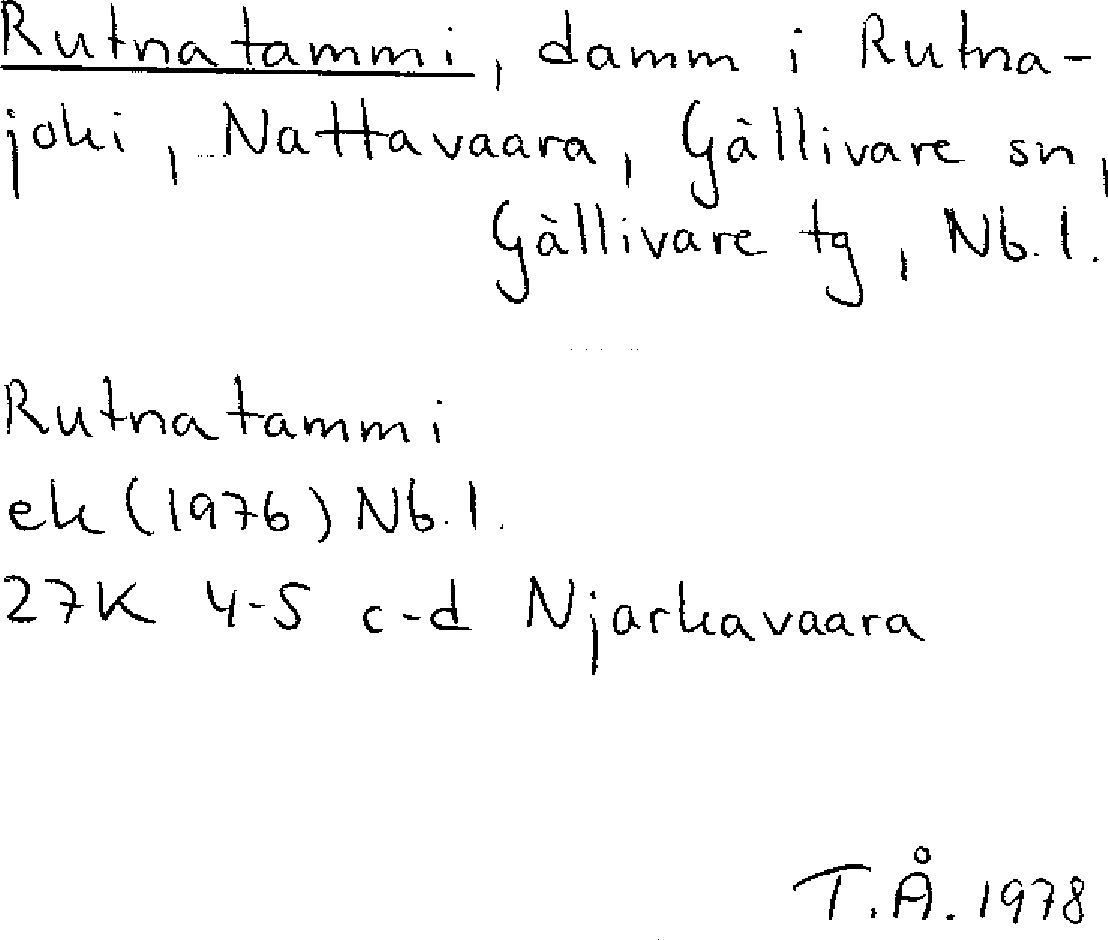 Rutnatammi, damm i Rutna-
joki, Nattavaara, Gällivare sn,
Gällivare tg, Nb.l.
Rutnatammi
ek (1976) Nb.l.
27K 4-5 c-d Njarkavaara
T.Å. 1978